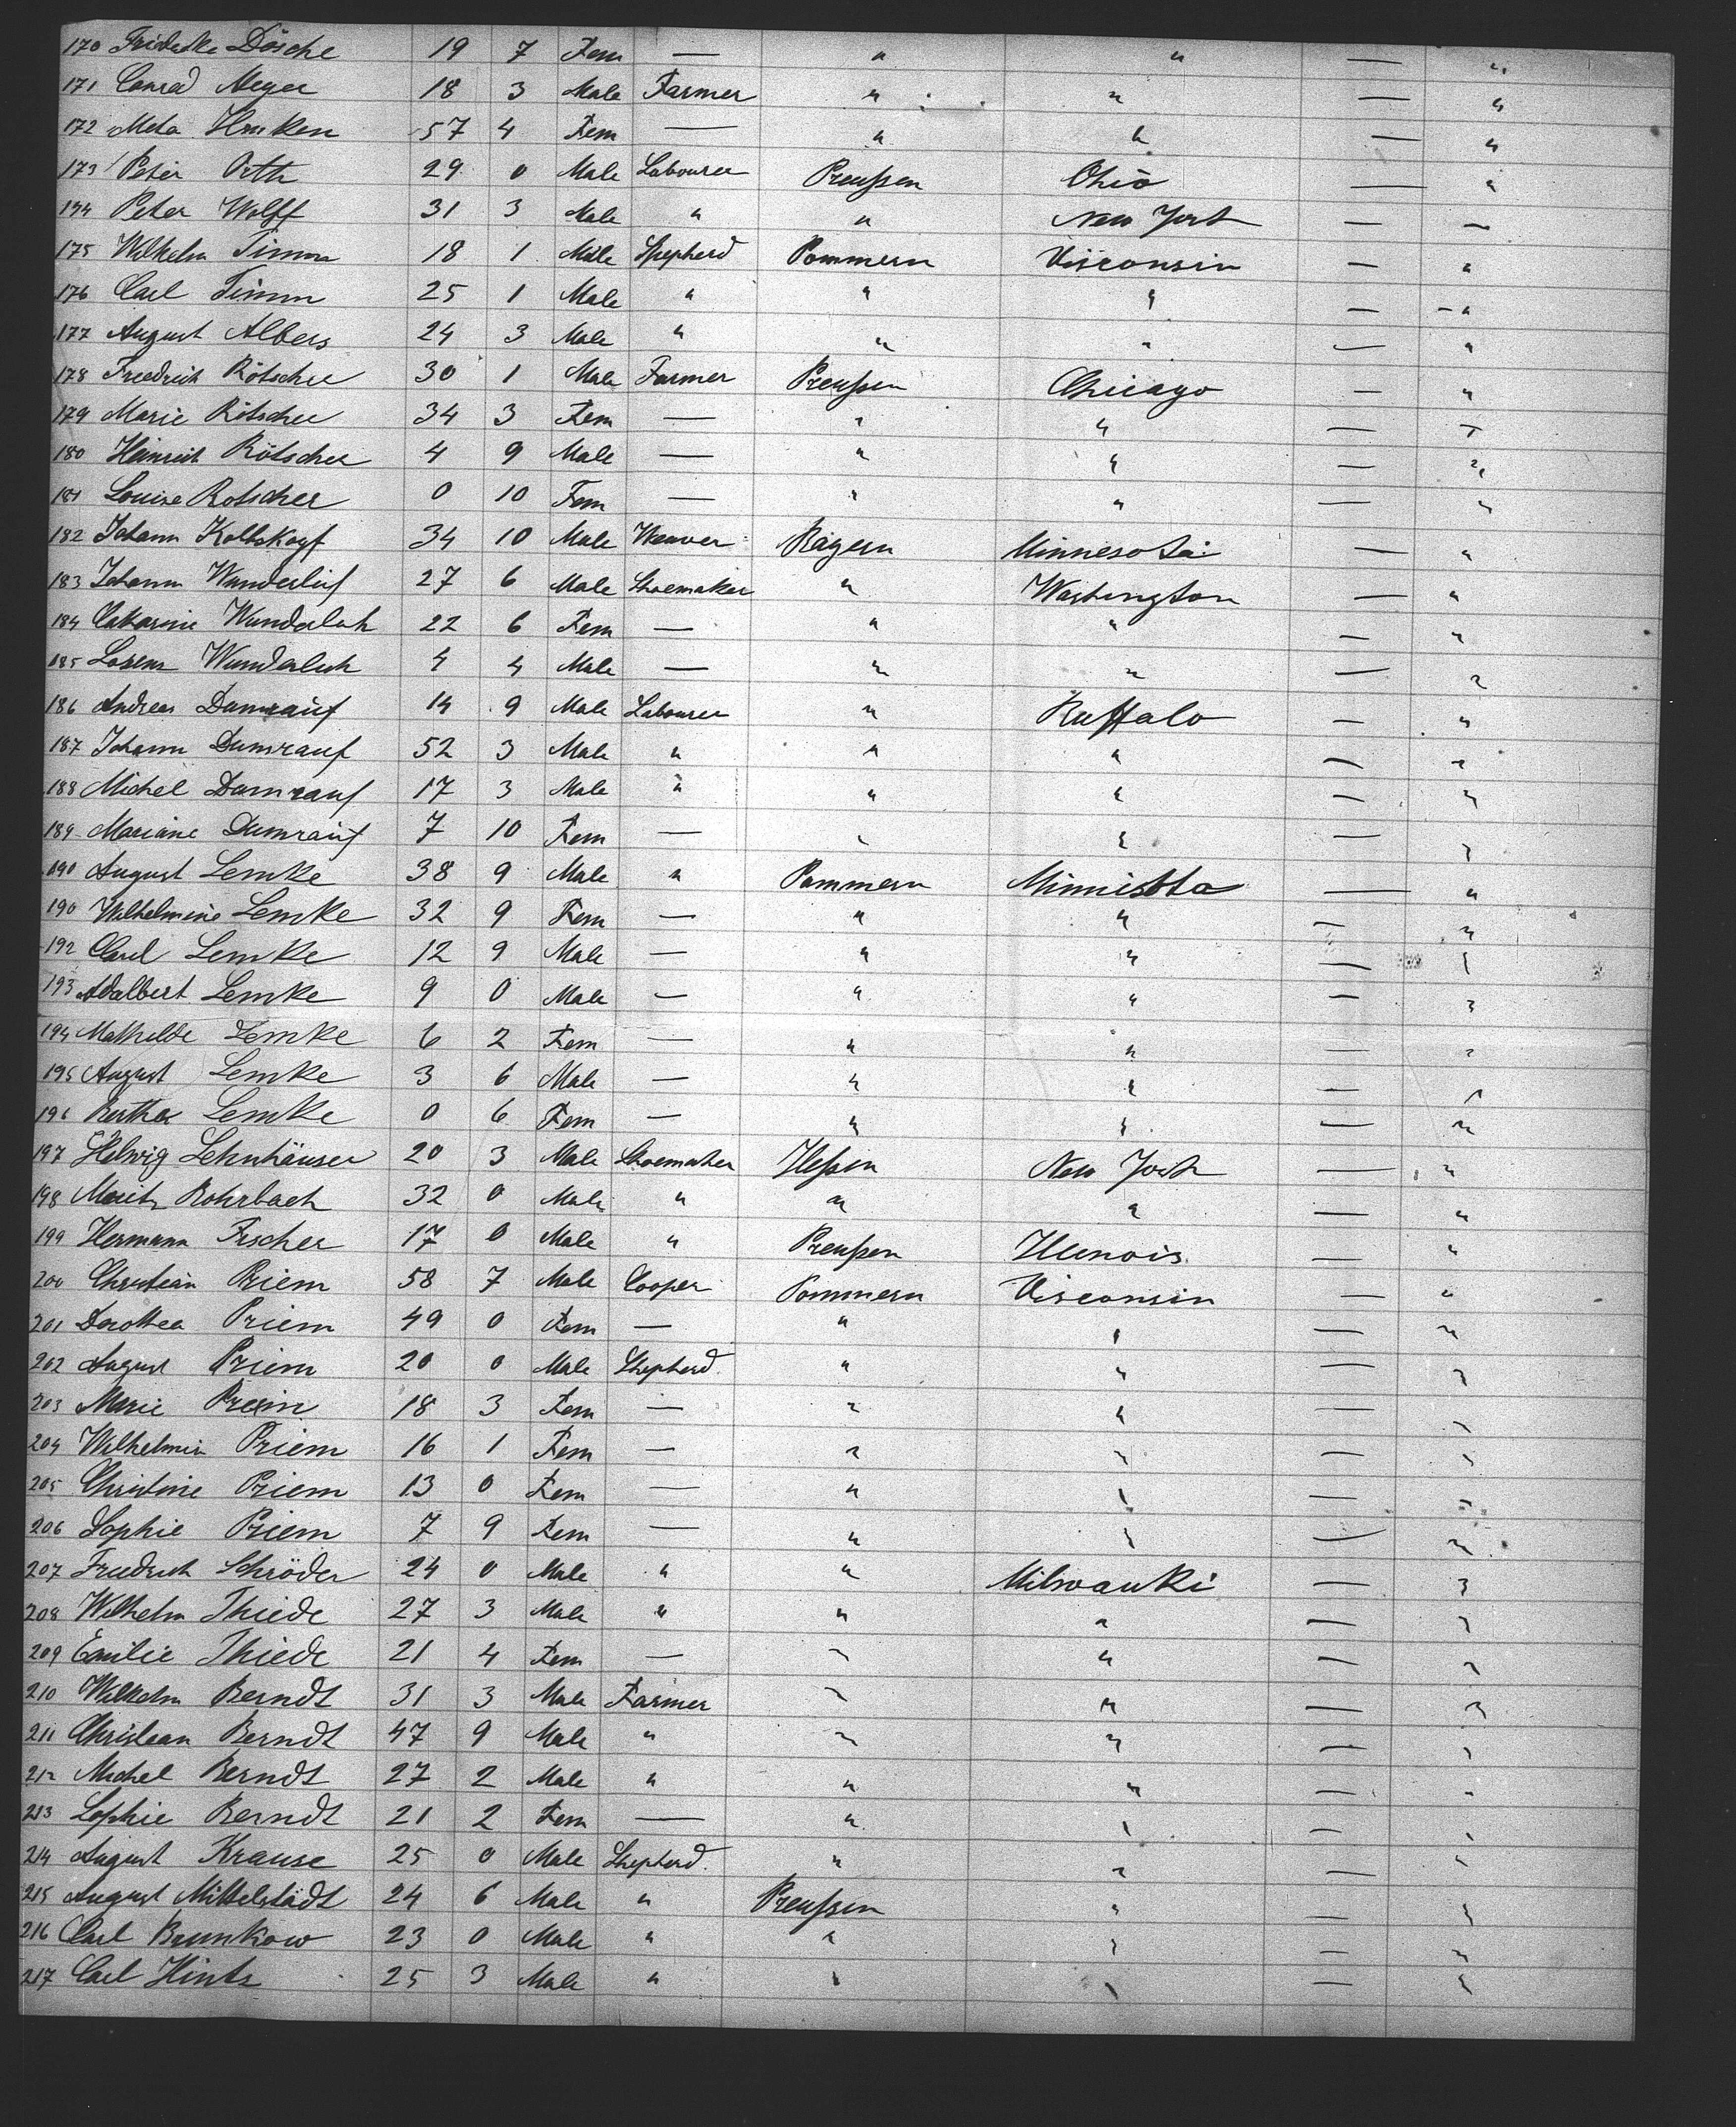 170 Friderike Dösche 19 7 Fem — " " — "
171 Conrad Meyer 18 3 Male Farmer " " — "
172 Meta Hinken 57 4 Fem — " " — "
173 Peter Orth 29 0 Male Labourer Preußen Ohio — "
174 Peter Wolff 31 3 Male " " New York — —
175 Wilhelm Timm 18 1 Male Shepherd Pommern Visconsin — "
176 Carl Timm 25 1 Male " " " — "
177 August Albers 24 3 Male " " " — "
178 Friedrich Rötscher 30 1 Male Farmer Preußen Chicago — "
179 Marie Rötscher 34 3 Fem — " " — "
180 Heinrich Rötscher 4 9 Male — " " — "
181 Louise Rotscher 0 10 Fem — " " — "
182 Johann Kolbskopf 34 10 Male Weaver Bayern Minnesota — "
183 Johann Wunderlich 27 6 Male Shoemaker " Washington — "
184 Catharine Wunderlich 22 6 Fem — " " — "
185 Lorenz Wunderlich 4 4 Male — " " — "
186 Andreas Dumrauf 14 9 Male Labourer " Buffalo — "
187 Johann Dumrauf 52 3 Male " " " — "
188 Michel Dumrauf 17 3 Male " " " — "
189 Mariane Dumrauf 7 10 Fem — " " — "
190 August Lemke 38 9 Male " Pommern Minnisota — "
190 Wilhelmine Lemke 32 9 Fem — " " — "
192 Carl Lemke 12 9 Male — " " — "
193 Adalbert Lemke 9 0 Male — " " — "
194 Mathilde Lemke 6 2 Fem — " " — "
195 August Lemke 3 6 Male — " " — "
196 Bertha Lemke 0 6 Fem — " " — "
197 Helwig Lehnhäuser 20 3 Male Shoemaker Heßen New York — "
198 Rohrbach 32 0 Male " " " — "
199 Hermann Fischer 17 0 Male " Preußen Illinois — "
200 Christian Priem 58 7 Male Cooper Pommern Visconsin — "
201 Dorothea Priem 49 0 Fem — " " — "
202 August Priem 20 0 Male Shepherd " " — "
203 Marie Priem 18 3 Fem — " " — "
204 Wilhelmin Priem 16 1 Fem — " " — "
205 Christine Priem 13 0 Fem — " " — "
206 Sophie Priem 7 9 Fem — " " — "
207 Friedrich Schröder 24 0 Male " " Milwauki — "
208 Wilhelm Thiede 27 3 Male " " " — "
209 Emilie Thiede 21 4 Fem — " " — "
210 Wilhelm Berndt 31 3 Male Farmer " " — "
211 Christian Berndt 47 9 Male " " " — "
212 Michel Berndt 27 2 Male " " " — "
213 Sophie Berndt 21 2 Fem — " " — "
214 August Krause 25 0 Male Shepherd " " — "
215 August Mittelstädt 24 6 Male " Preußen " — "
216 Carl Brunkow 23 0 Male " " " — "
217 Carl Hintz 25 3 Male " " " — "